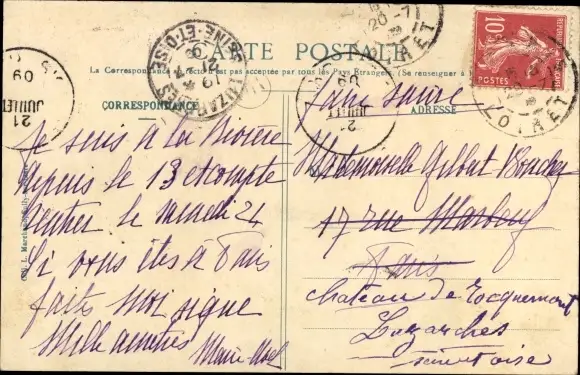 CARTE POSTALE
La Correspondance au recto n'est pas acceptée par tous les Pays Etrangers. (Se renseigner à
CORRESPONDANCE
ADRESSE
faire suivre
Je suis à la Rivière
depuis le 13 et compte
rentrer le samedi 24
Si vous êtes à Paris
faites moi signe
Mille amitiés
Marie
Mademoiselle Gilbert Boucher
17 rue Marbeuf
Paris
château de Rocquemont
Luzarches
Seine et oise
10c
POSTES
21
JUILLET
09
LUZARCHES
SEINE-ET-OISE
21 -7
09
20 -7
LOIRET